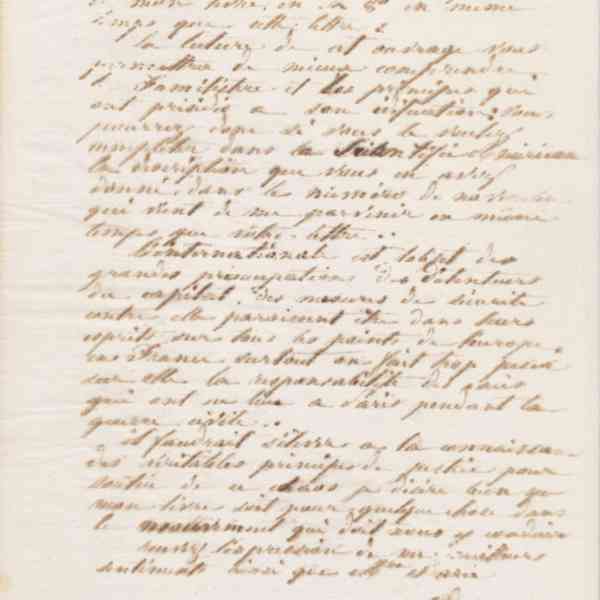 de mon livre, en la en même
temps que cette lettre.
la lecture de cet ouvrage vous
permettra de mieux comprendre
le Familistère et les principes qui
ont présidé a son vous
pourrez donc si vous le voulez
compléter dans le Scientific American
la description que vous en avez
donné dans le numéro de
qui vient de me parvenir en même
temps que votre lettre.
L'internationale est l'objet des
grandes préoccupations des détenteurs
du capital, des mesures de sécurité
contre elle paraissent être dans leurs
esprits sur tous les points de l'europe
en France surtout on fait trop peser
sur elle la responsabilité des faits
qui ont eu lieu a Paris pendant la
guerre civile.
il faudrait s'élever a la connaissance
des véritables principes de justice pour
sortir de ce chaos je désire bien que
mon livre soit pour quelque chose dans
le mouvement qui doit nous y conduire
l'expression de mes meilleurs
sentiments ainsi que